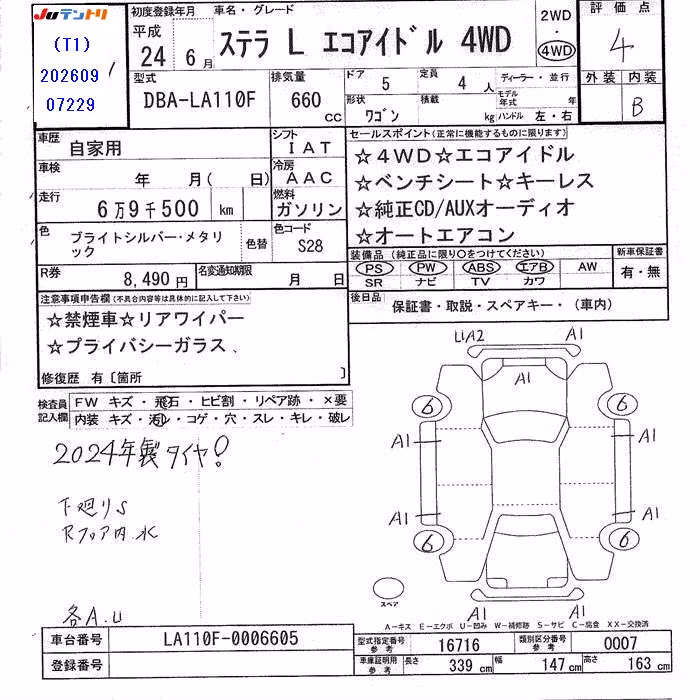 JUテントリ
(T1)
202609
07229
初度登録年月
平成
24 6月
車名・グレード
ステラ L エコアイドル 4WD
2WD
・
4WD
評価点
4
外装 内装
B
型式
DBA-LA110F
排気量
660 cc
ドア 5
定員 4 人
形状 ワゴン
積載 kg
ディーラー・並行
モデル年式 年
ハンドル 左・右
車歴 自家用
シフト IAT
車検 年 月( 日)
冷房 AAC
走行 6万9千500 km
燃料 ガソリン
色 ブライトシルバー・メタリ
ック
色替
色コード S28
R券 8,490円
名変通知期限 月 日
セールスポイント(正常に機能するものに限ります)
☆4WD☆エコアイドル
☆ベンチシート☆キーレス
☆純正CD/AUXオーディオ
☆オートエアコン
装備品(純正品に限り○をつけてください)
PS PW ABS エアB AW
SR ナビ TV カワ
新車保証書
有・無
後日品 保証書・取説・スペアキー・(車内)
注意事項申告欄(不具合内容等は具体的に記入して下さい)
☆禁煙車☆リアワイパー
☆プライバシーガラス、
修復歴 有〔箇所 〕
検査員
記入欄
FW キズ・飛石・ヒビ割・リペア跡・×要
内装 キズ・汚れ・コゲ・穴・スレ・キレ・破レ
2024年製タイヤ!
下廻りS
Rフロア内 水
各A.U
U1A2 A1
A1
6 6
A1 A1
A1 A1
6 6
A1 A1
スペア
A-キズ E-エクボ U-凹み W-補修跡 S-サビ C-腐食 XX-交換済
車台番号 LA110F-0006605
登録番号
型式指定番号
参考
16716
類別区分番号
参考
0007
車庫証明用
参考
長さ 339 cm 幅 147 cm 高さ 163 cm